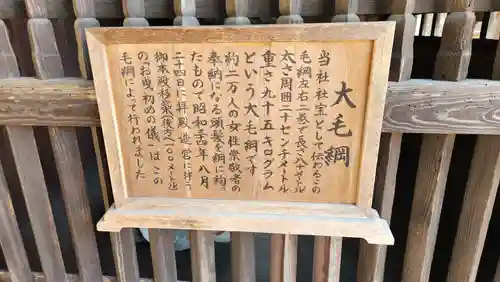 大毛綱
当社社宝として伝わるこの
毛綱左右二巻で長さ八十メートル
太さ周囲二十センチメートル
重さ九十五キログラム
という大毛綱です
約二万人の女性崇敬者の
奉納になる頭髪を綱に綯っ
たもので昭和三四年八月
二十四日に拝殿造営に伴う
御本殿移築(後方一〇〇メートル)
の「お曳き初めの儀」はこの
毛綱によって行われました